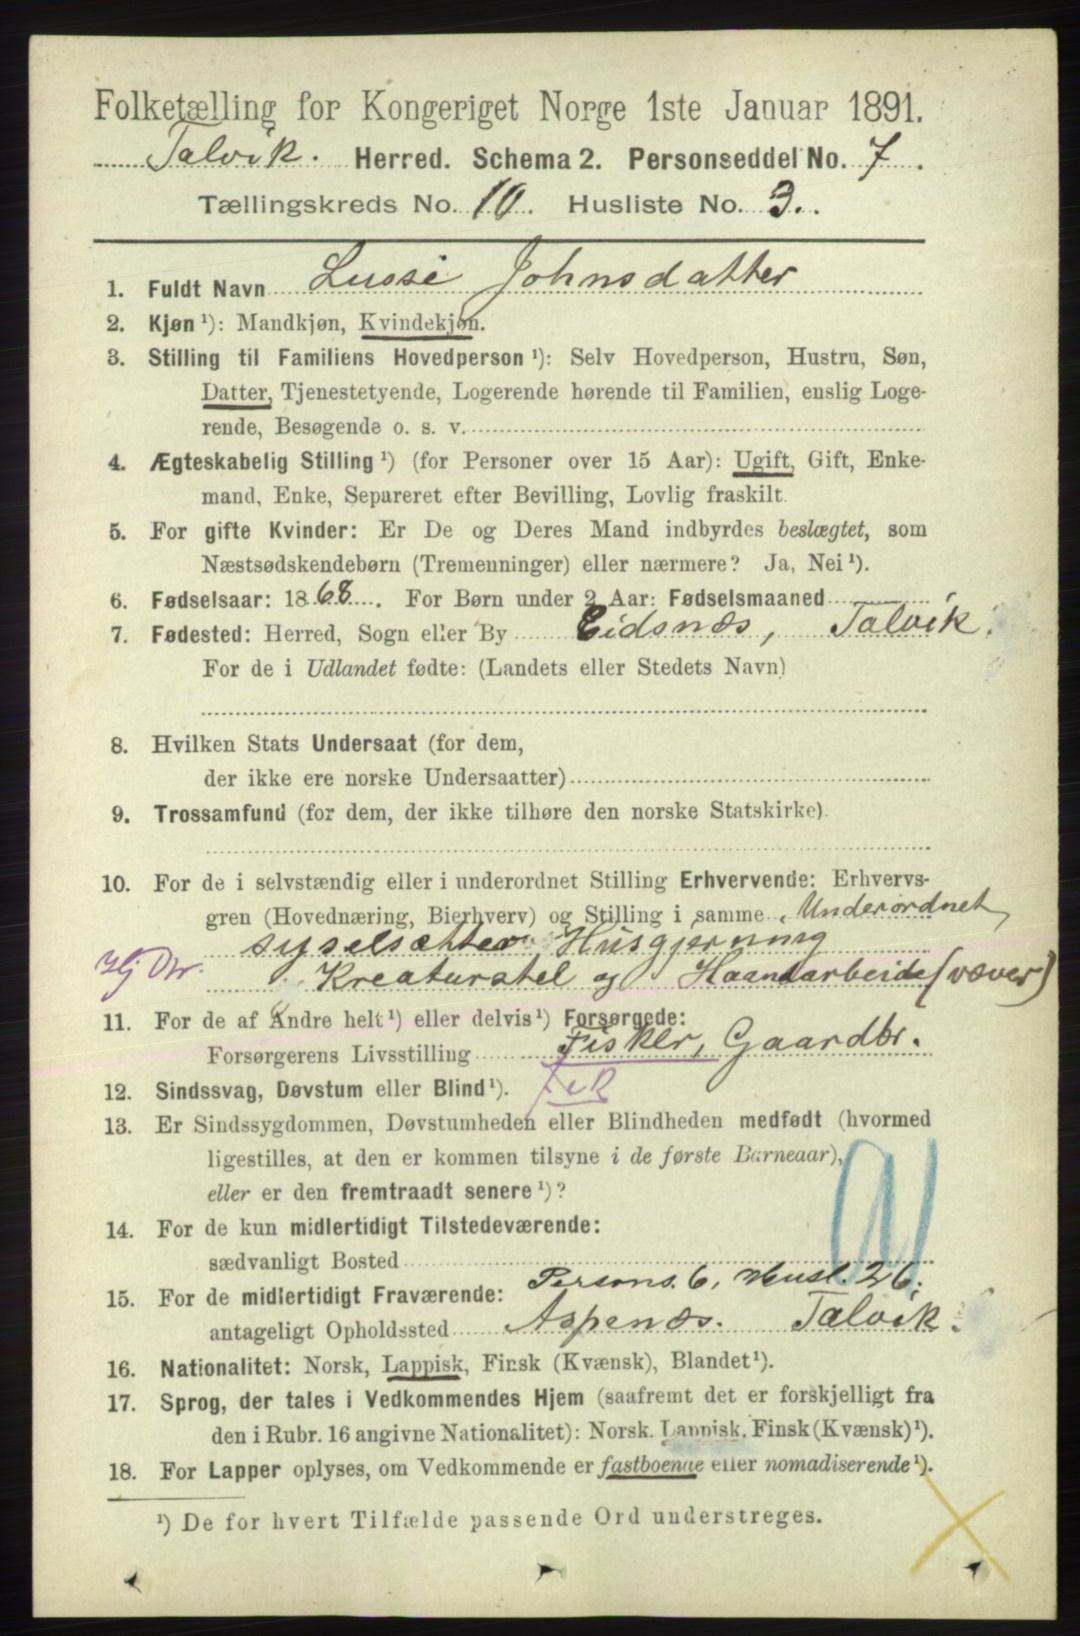 Folketælling for Kongeriget Norge 1ste Januar 1891.
Talvik. Herred. Schema 2. Personseddel No. 7.
Tællingskreds No. 10. Husliste No. 3.
1. Fuldt Navn Lussi Johnsdatter
2. Kjøn ¹): Mandkjøn, Kvindekjøn.
3. Stilling til Familiens Hovedperson ¹): Selv Hovedperson, Hustru, Søn,
Datter, Tjenestetyende, Logerende hørende til Familien, enslig Loge-
rende, Besøgende o. s. v.
4. Ægteskabelig Stilling ¹) (for Personer over 15 Aar): Ugift, Gift, Enke-
mand, Enke, Separeret efter Bevilling, Lovlig fraskilt.
5. For gifte Kvinder: Er De og Deres Mand indbyrdes beslægtet, som
Næstsødskendebørn (Tremenninger) eller nærmere? Ja, Nei ¹).
6. Fødselsaar: 1868. For Børn under 2 Aar: Fødselsmaaned
7. Fødested: Herred, Sogn eller By Eidsnæs, Talvik.
For de i Udlandet fødte: (Landets eller Stedets Navn)
8. Hvilken Stats Undersaat (for dem,
der ikke ere norske Undersaatter)
9. Trossamfund (for dem, der ikke tilhøre den norske Statskirke).
10. For de i selvstændig eller i underordnet Stilling Erhvervende: Erhvervs-
gren (Hovednæring, Bierhverv) og Stilling i samme Underordnet,
syselsætter Husgjerning
Hj Dtr. Kreaturstel og Haandarbeide (væver)
11. For de af Andre helt ¹) eller delvis ¹) Forsørgede:
Forsørgerens Livsstilling Fisker, Gaardbr.
12. Sindssvag, Døvstum eller Blind ¹).
13. Er Sindssygdommen, Døvstumheden eller Blindheden medfødt (hvormed
ligestilles, at den er kommen tilsyne i de første Barneaar),
eller er den fremtraadt senere ¹)?
14. For de kun midlertidigt Tilstedeværende:
sædvanligt Bosted
Persons. 6, Husl. 26.
15. For de midlertidigt Fraværende:
antageligt Opholdssted Aspenæs. Talvik.
16. Nationalitet: Norsk, Lappisk, Finsk (Kvænsk), Blandet ¹).
17. Sprog, der tales i Vedkommendes Hjem (saafremt det er forskjelligt fra
den i Rubr. 16 angivne Nationalitet): Norsk, Lappisk, Finsk (Kvænsk) ¹).
18. For Lapper oplyses, om Vedkommende er fastboende eller nomadiserende ¹).
¹) De for hvert Tilfælde passende Ord understreges.